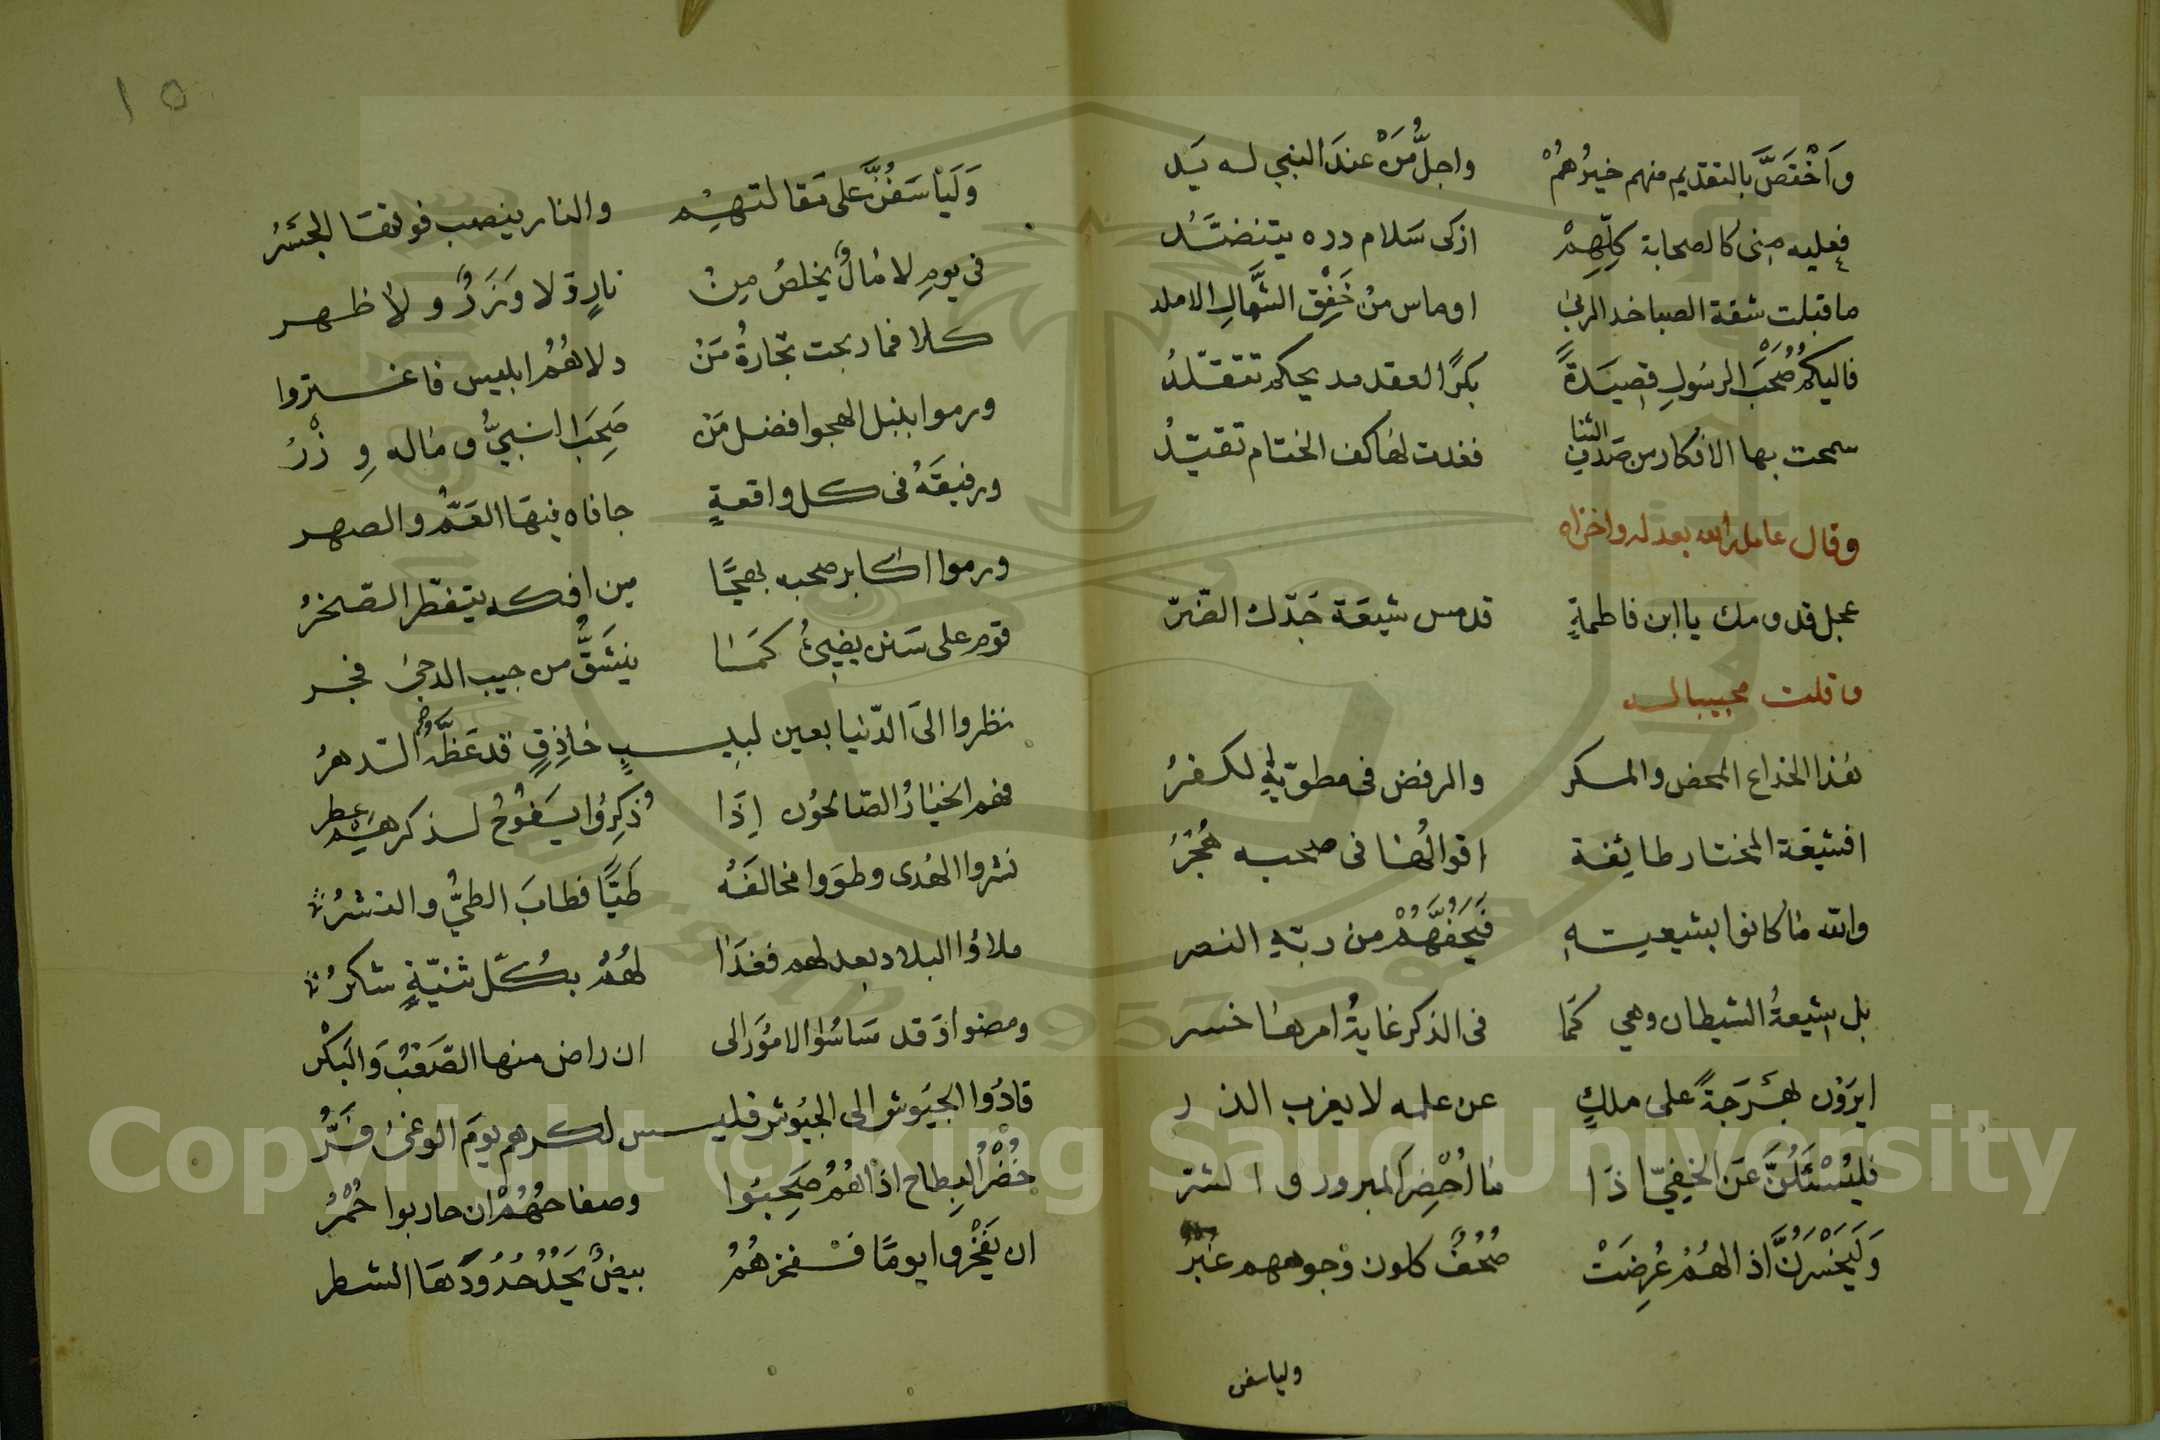 وَاَخْتَصَّ بالتقديم منهم خيرُهُمْ واجلُّ مَنْ عندَ النبي له يَد
فعليه منى كالصحابة كلِّهِمْ ازكى سَلام دره يتنضَّدُ
ما قبلت شفة الصبا خد الربىٰ او ماس منْ خَفِقِ الشَّمالِ الاملد
فاليكمُ صُحْبَ الرسُولِ قصِيدَةً بكرًا لعقد مديحكم تتقلّدُ
سمحت بها الافكار من صَدَفِ الثنا فغدت لها كف الختام تقيّدُ
وقال عامله الله بعدله واخزاه
عجل قدومك يا ابن فاطمةٍ قد مس شيعَة جَدّك الضّرّ
وقلت مجيبا له
هٰذا الخداع المحض والمكر والرفض فى مطويّهِ الكفرُ
افشيعَة المختار طائِفة اقوالُهٰا فى صحبه هُجْرُ
والله مٰا كانوا بشيعيتهِ فَيَحَفُهَّمْ من ربّهِ النصر
بل شِيعةُ الشيطان وهي كمَا فى الذكر غايةُ امرهٰا خسر
ايرَوْن بَهْرَجَةً على ملكٍ عن علمه لا يعزب الذر
فليُسْئَلُنَّ عَن الخفِيّ اذَا مٰا اُحْضِرَ المبرور والشرّ
وَلَيَخْسَرُنَّ اذا لهُمُ عُرِضَتْ صُحُفٌ كلون وجوههم غُبْرُ
ولياسفن
١٥
وَلَيَأسَفُنَّ على مَقالتهِمِ والنار ينصب فوقهَا الجَسْرُ
فى يومِ لا مٰالٌ يخلصُ مِنْ نارٍ وَلا وَزَرٌ ولا ظهر
كلا فما ربحت تجارةُ مَنْ دلاهُمُ ابليس فاغتروا
ورموا بنبل الهجو افضل مَنْ صَحِبَ النبيَّ ومٰاله وِزْرُ
ورفيقَهُ فى كل واقعةٍ جافاه فيهَا العَمُّ والصهر
ورموا اكابر صحبه بهجًا من افكه يتفطر الصّخرُ
قوم على سَنن يضِيئُ كمَا ينشَقُّ من جيب الدجىٰ فجر
نظروا الىَ الدّنيا بعين لبيبٍ حٰاذِقٍ قد عَظَّهُ الدهرُ
فهم الخيٰارُ الصّالحُون اِذَا ذُكِرُوا يَفُوحُ لذكرهِم عِطر
نشروا الهُدى وطوَوا مخالفَهُ طَيًّا فطابَ الطيُّ والنشرُ
ملاؤا البلاد بعدلهم فغدَا لهُمُ بكُلّ ثنيّةٍ شكرُ
ومضوا وَقد سَاسُوْا الامُوَر الى ان راض منها الصّعْبُ وَالبَكْر
قادُوا الجيَوش الى الجيُوش فليس لكرهم يومَ الوغىٰ فَرُّ
خُضْرُ البِطاح اذا هُمُ صَحِبُوا وصفاحُهُمْ ان حاربوا حُمْرُ
ان يَفْخروا يومًا فمفخرهُمُ بيضٌ يَحَدُّ حُدُودَهَا الشطر